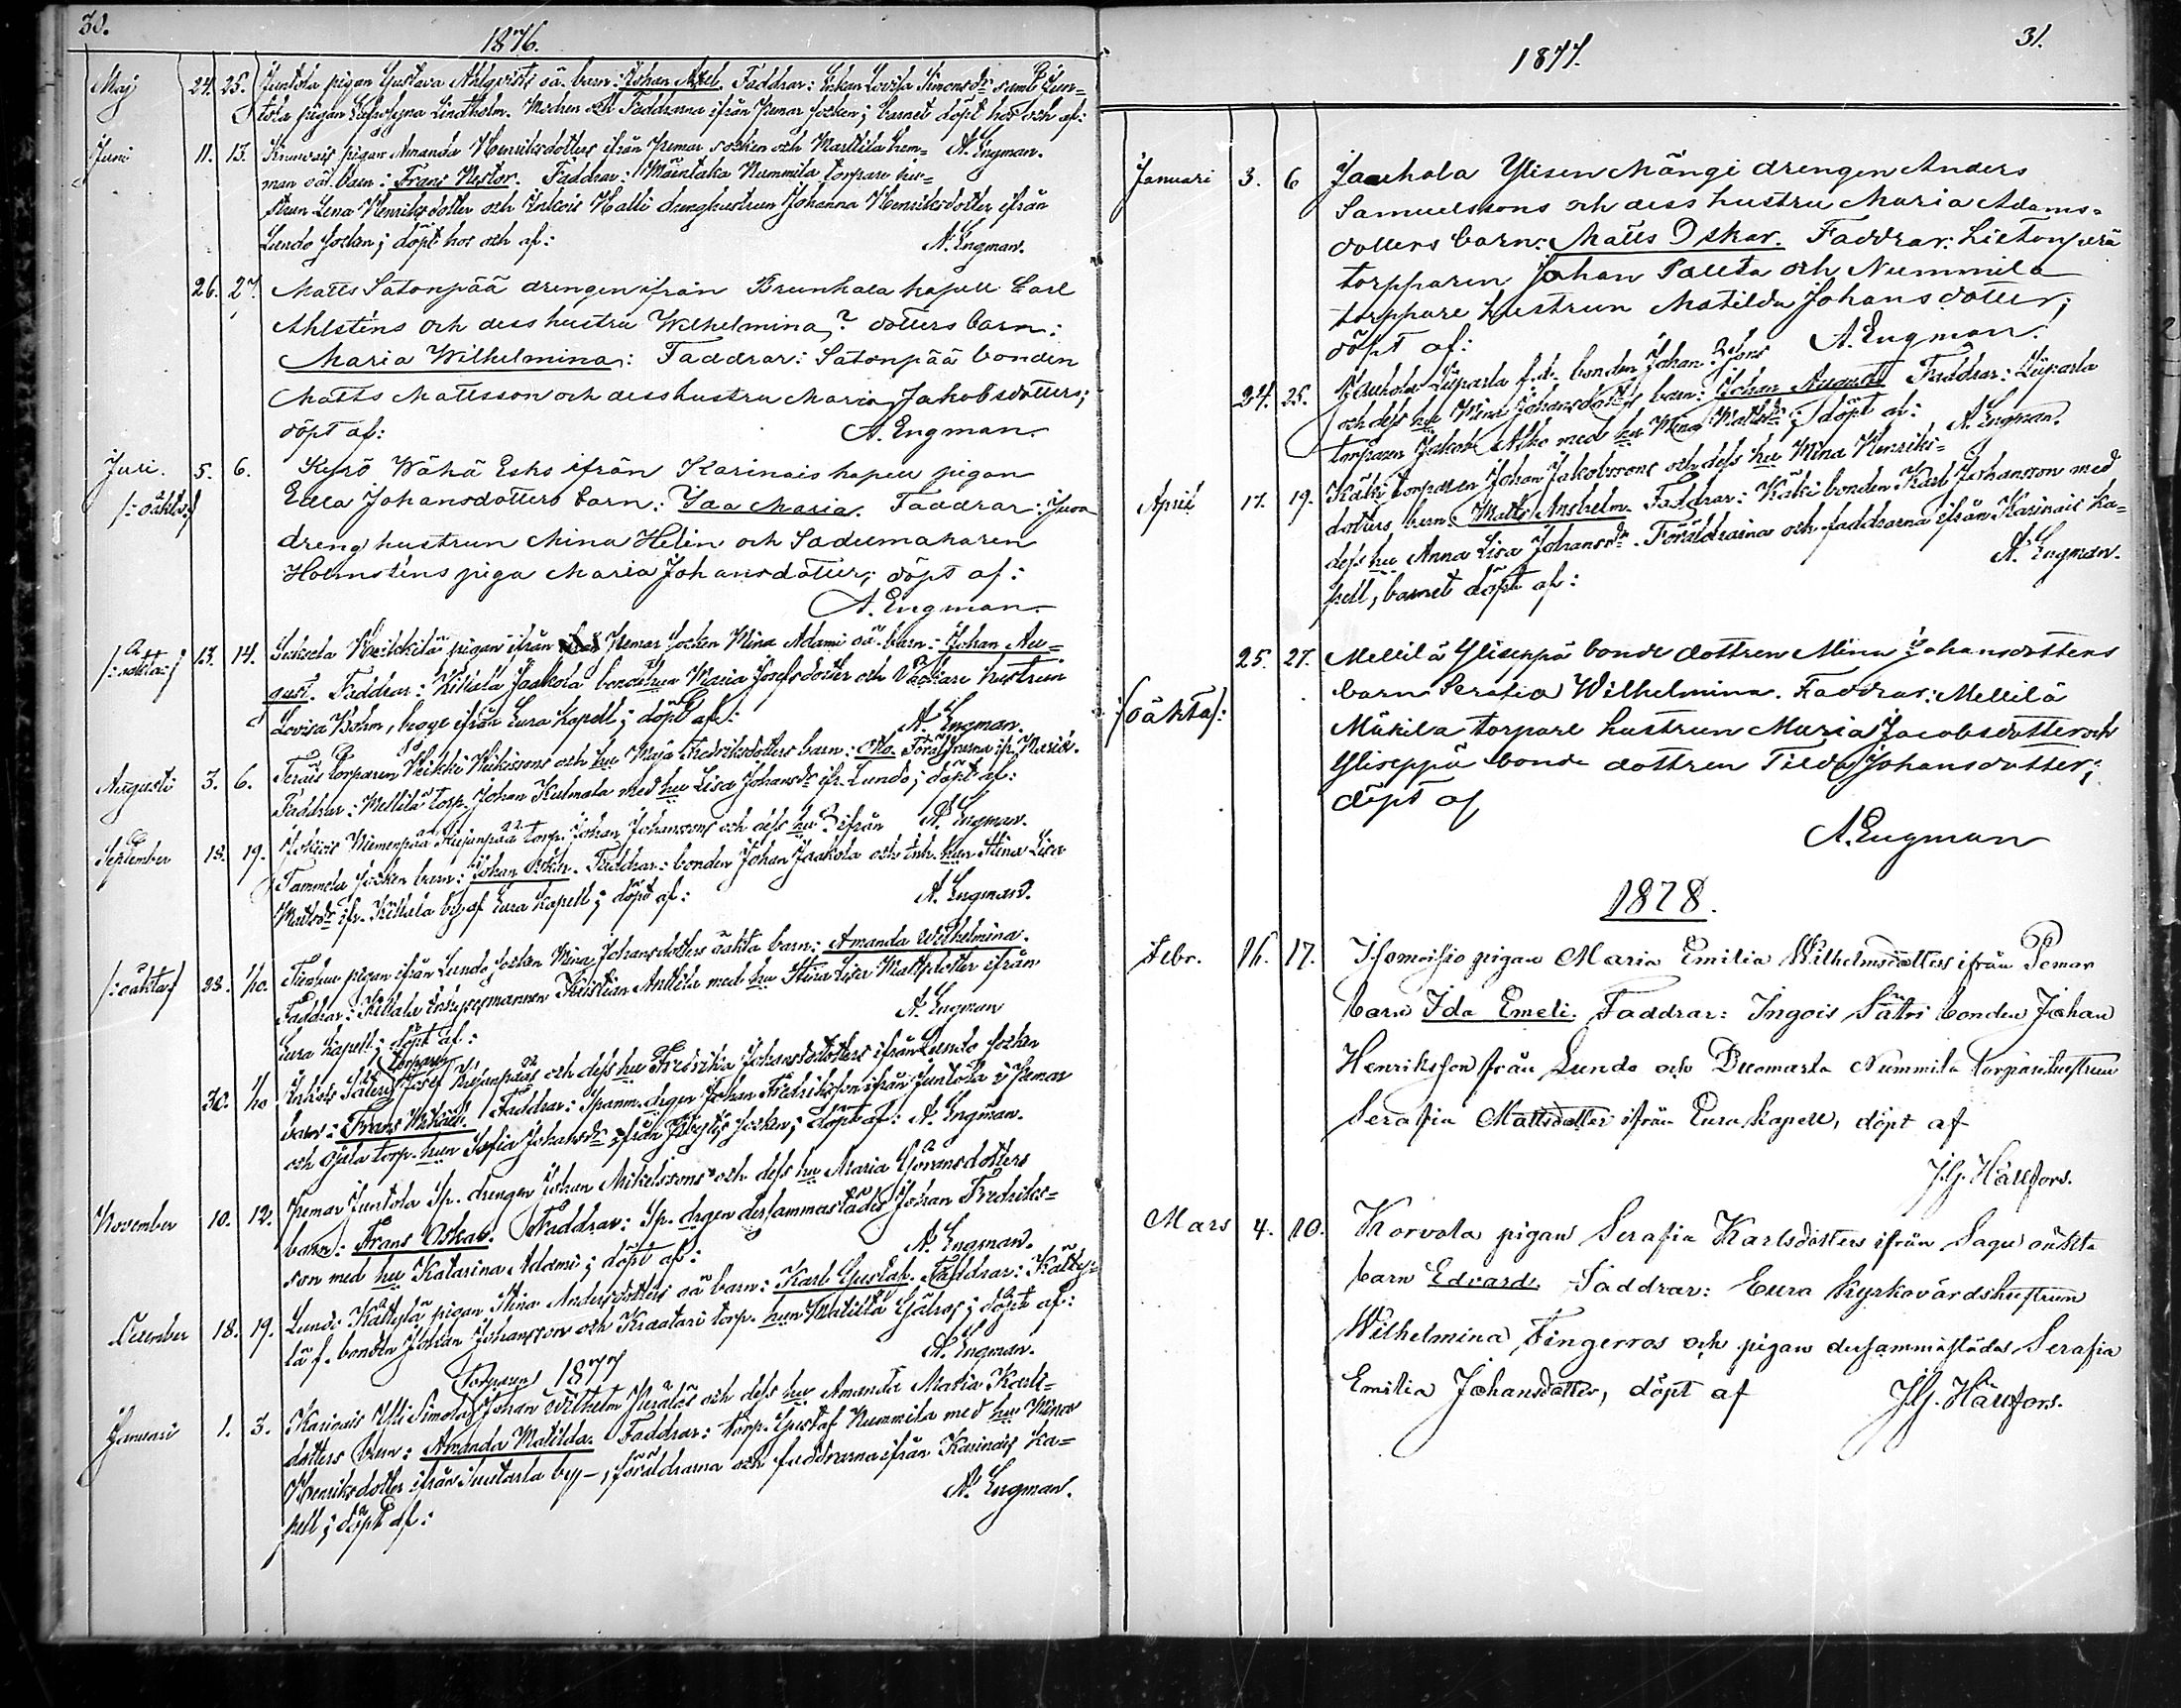 30.
1876.
Maj 24. 25. Juntola pigan Gustava Ahlqvists oä. barn: Johan Axel. Faddrar: Enkan Lovisa Simonsdr samt Jun=
tola pigan Lindholm. Modren och Faddrarna ifrån Pemar socken; barnet döpt hos och af:
Juni 11. 13. pigan Amanda Henriksdotters ifrån Pemar socken och Marttila hem= A. Engman.
man oä. barn: Frans Nestor. Faddrar: Mäintaka Nummila torpare hu=
strun Lena Henriksdotter och Inkois Halli drenghustrun Johanna Henriksdotter ifrån
Lundo socken; döpt hos och af: A. Engman.
26. 27. Matts Satonpää drengen ifrån Brunkala kapell Carl
Ahlsténs och dess hustru Wilhelmina ? dotters barn:
Maria Wilhelmina: Faddrar: Satonpää bonden
Matts Mattsson och dess hustru Maria Jakobsdotters;
döpt af: A. Engman.
Juri. 5. 6. Kyrö Wähä Esko ifrån Karinais kapell pigan
/: oäkta :/ Edla Johansdotters barn: Idaa Maria. Faddrar: Juva
dreng hustrun Mina Helin och Sadelmakaren
Holmsténs piga Maria Johansdotter; döpt af:
A. Engman.
/: oäkta :/ 13. 14. pigan ifrån Pemar socken Mina Adami oä. barn: Johan Au=
gust. Faddrar: Killala Jaakola bondehun Maria Josefsdotter och hustrun
Lovisa Bohm, begge ifrån Eura kapell; döpt af: A. Engman.
Augusti 3. 6. Teräis torparen Heikki Heikissons och hu Maja Fredriksdotters barn: Otto. Föräldrarna ifr.
Faddrar: Mellilä torp. Johan Kulmala med hu Lisa Johansdr ifr. Lundo; döpt af:
September 18. 19. Niemenpää torp. Johan Johanssons och dess hu ? ifrån A. Engman.
Tammela socken barn: Johan Oskar. Faddrar: bonden Johan Jaakola och inh. hun Stina Lisa
Mattsdr ifr. Killala by af Eura kapell; döpt af: A. Engman.
/: oäkta :/ 28. 1/10. pigan ifrån Lundo socken Mina Johansdotters oäkta barn: Amanda Wilhelmina.
Faddrar: Killala Kristian Anttila med hu Stina Lisa Mattsdotter ifrån
Eura kapell; döpt af: A. Engman
torparen
30. 1/10 Josef och dess hu Fredrika Johansdotters ifrån Lundo socken
barn: Frans Mikael. Faddrar: Spanm. drgen Johan Fredriksson ifrån Juntola i Pemar
och Ojala torp. hun Sofia Johansdr ifrån socken; döpt af: A. Engman.
November 10. 12. Pemar Juntola Sp. drengen Johan Mikelssons och dess hu Maria Göransdotters
barn: Frans Oskar. Faddrar: Sp. drgen dersammastädes Johan Fredriks=
son med hu Katarina Adami; döpt af: A. Engman.
December 18. 19. Lundo Kättylä pigan Stina Andersdotters oä barn: Karl Gustaf. Faddrar: Kätty=
lä f. bonden Johan Johansson och Kraatari torp. hun Matilda döpt af:
A. Engman.
Torparen 1877
Januari 1. 3. Karinais Yli Simola Johan Wilhelm och dess hu Amanda Maria Karls=
dotters barn: Amanda Matilda. Faddrar: torp. Gustaf Nummila med hu Mina
Henriksdotter ifrån by, föräldrarna och faddrarna ifrån Karinais ka=
pell; döpt af: A. Engman.
31.
1877.
Januari 3. 6 Jaarhola Ylisen Mängi drengen Anders
Samuelssons och dess hustru Maria Adams=
dotters barn: Matts Oskar. Faddrar: Lietonperä
torpparen Johan Pallta och Nummila
torppare hustrun Matilda Johansdotter;
döpt af: A. Engman.
24. 25. Liiparla f.d. bonden Johan
och dess hu Mina Johansdotters barn: Johan August. Faddrar: Liiparla
torparen Jakob Alho med hu Mina Mattsdr; döpt af: A. Engman.
April 17. 19. Käki torparen Johan Jakobssons och dess hu Mina Henriks=
dotters barn: Matts Anshelm. Faddrar: Käki bonden Karl Johansson med
dess hu Anna Lisa Johansdr. Föräldrarna och faddrarna ifrån Karinais ka=
pell, barnet döpt af: A. Engman.
25. 27. Mellilä Yliseppä bonde dottren Mina Johansdotters
/oäkta/: barn Serafia Wilhelmina. Faddrar: Mellilä
Mäkila torpare hustrun Maria Jacobsdotter och
Yliseppä bonde dottren Tilda Johansdotter;
döpt af
A. Engman
1878.
Febr. 16. 17. Isomoisio pigan Maria Emilia Wilhelmsdotters ifrån Pemar
barn Ida Emeli. Faddrar: Ingois Sätri bonden Johan
Henriksson från Lundo och Duomarla Nummila torparehustrun
Serafia Mattsdotter ifrån Eura kapell, döpt af
J.G. Hällfors.
Mars 4. 10. Korvola pigan Serafia Karlsdotters ifrån Sagu oäkta
barn Edvard. Faddrar: Eura kyrkovärdshustrun
Wilhelmina Fingerroos och pigan dersammastädes Serafia
Emilia Johansdotter, döpt af J.G. Hällfors.